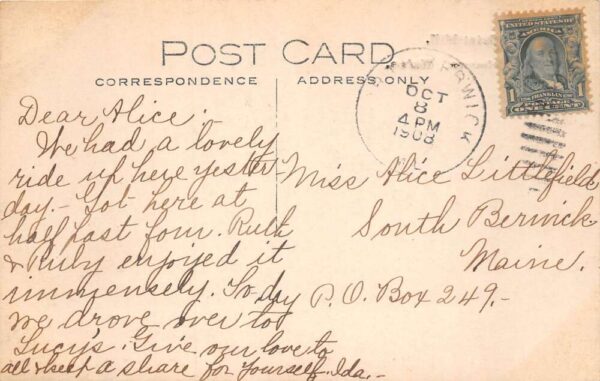 POST CARD
CORRESPONDENCE
ADDRESS ONLY
UNITED STATES OF AMERICA
1 1
POSTAGE
ONE CENT
RWICK
OCT
8
4 PM
1908
Dear Alice.
We had a lovely
ride up here yester-
day.- Got here at
half past four. Ruth
& Ruby enjoyed it
immensely. To day
we drove over to
Lucy's. Give our love to
all & keep a share for yourself. Ida.-
Miss Alice Littlefield
South Berwick
Maine.
P.O. Box 249.-